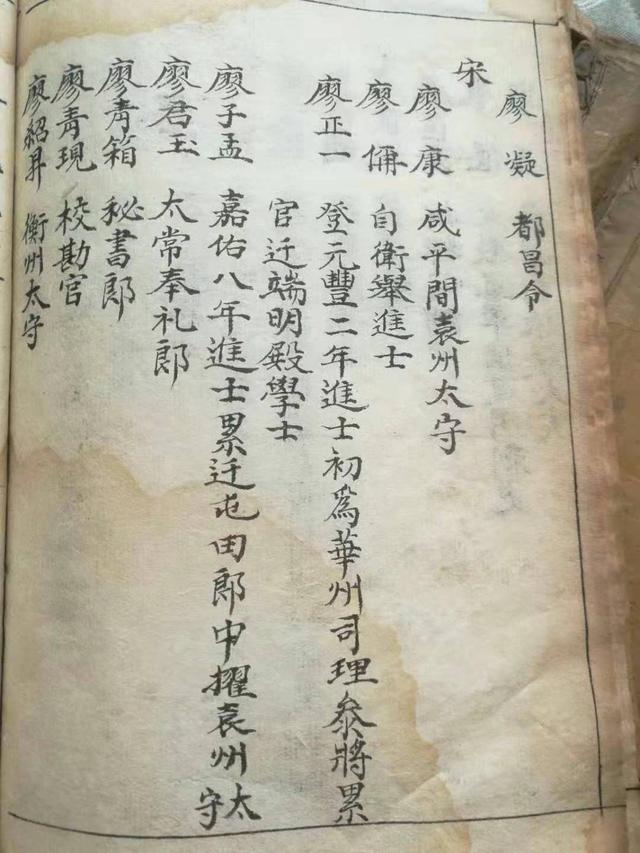 廖凝 都昌令
宋
廖康 咸平間袁州太守
廖偁 自衛舉進士
廖正一 登元豐二年進士初爲華州司理叅將累
官迁端明殿學士
廖子孟 嘉佑八年進士累迁屯田郎中擢袁州太守
廖君玉 太常奉礼郎
廖青箱 秘書郎
廖青現 校勘官
廖紹昇 衡州太守